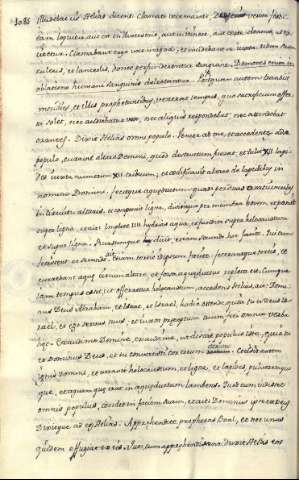 1086 Illudebat eis Helias dicens Clamate voce maiore: Deus enim
loquitur aut in
citetur. Clamabant ergo voce magna, et incidebant se iuxta ritum suum
cultris, et lanceolis, donec perfunderentur sanguine.
Postquam autem transiit
meridies, et illis prophetantibus, venerat tempus, quo sacrificium offer
ri solet, nec audiebatur vox, nec aliquis respondebat, nec attendebat
orantes. Dixit Helias omni populo. Venite ad me, et accedente
populo, curavit altare Domini, quod destructum fuerat, et tulit XII lapi
des iuxta numerum XII tribuum, et aedificavit altare de lapidibus in
nomine Domini. fecitque aquaeductum
in circuitu altaris, et composuit ligna, divisitque per membra bovem, et posuit
super ligna, et ait Implete IIII hydrias aqua, et fundite super holocaustum
et super ligna.
et
currebant aquae circum altare, et fossa aquaeductus repleta est. Cumque
iam tempus esset, ut offerretur holocaustum, accedens Helias, ait: Domi
ne Deus Abraham, et Isaac, et Israel, hodie ostende, quia tu es Deus Is
rael, et ego servus tuus, et iuxta praeceptum tuum feci omnia verba
haec. Exaudi me Domine, exaudi me, ut discat populus iste, quia tu
es Dominus Deus, et tu convertisti cor eorum Cecidit autem
ignis Domini, et voravit holocaustum, et ligna, et lapides, pulverem
que, et aquam quae erat in aquaeductu lambens. Quod cum vidisset
omnis populus, cecidit in faciem suam, et ait: Dominus ipse est Deus
Dixitque ad eos Helias. Apprehendite prophetas Baal, et nec unus
quidem effugiat ex eis. Quos cum apprehendissent duxit Helias eos